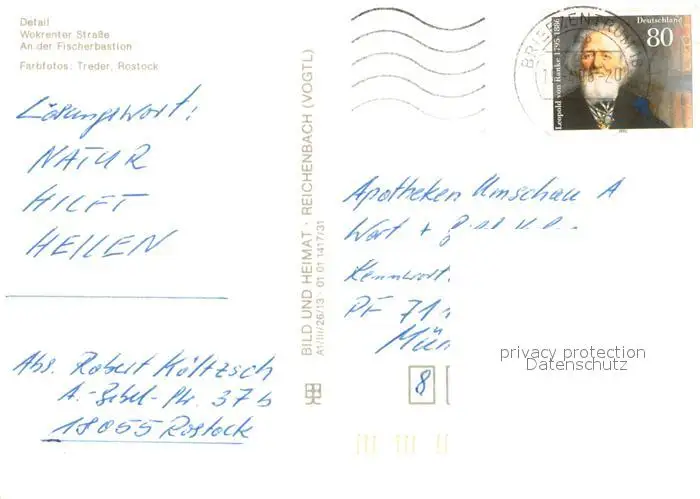 Detail
Wokrenter Straße
An der Fischerbastion
Farbfotos: Treder, Rostock
Lösungswort:
NATUR
HILFT
HEILEN
Abs. Robert Költzsch
A.-Bebel-Str. 37b
18055 Rostock
BILD UND HEIMAT · REICHENBACH (VOGTL)
A1/III/26/13 · 01 01 1417/31
BRIEFZENTRUM 18
Deutschland
80
Leopold von Ranke 1795-1886
Apotheken Umschau A
Wort +
Kennwort:
PF 711
Mün
8
privacy protection
Datenschutz